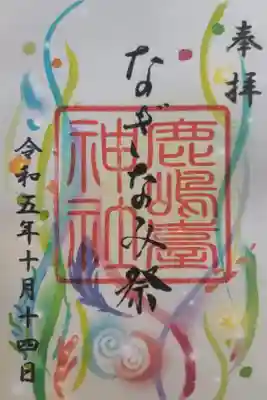 奉拝
なぎいなみ祭
鹿嶋臺神社
令和五年十月十四日